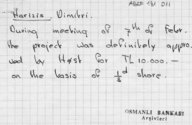 Harisis Dimitri.
During meeting of 7th of Febr.
the project was definitely appro
ved by Høst for TL 10.000.—
on the basis of 1/3d share.
OSMANLI BANKASI
Arşivleri